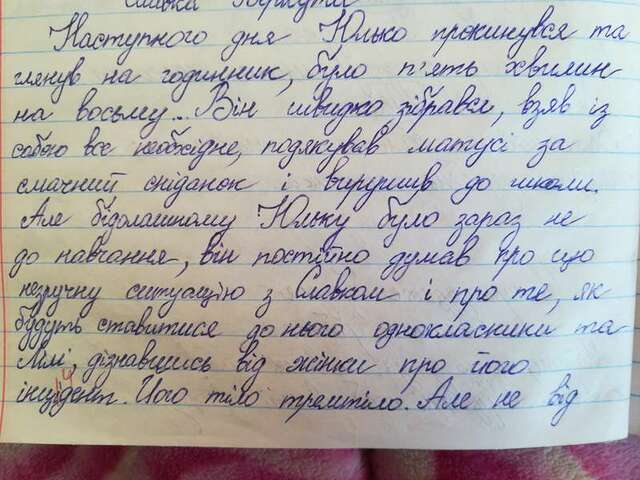 Наступного дня Юлько прокинувся та
глянув на годинник, було п'ять хвилин
на восьму... Він швидко зібрався, взяв із
собою все необхідне, подякував матусі за
смачний сніданок і вирушив до школи.
Але бідолашному Юльку було зараз не
до навчання, він постійно думав про цю
незручну ситуацію з Славком і про те, як
будуть ставитися до нього однокласники та
Лілі, дізнавшись від жінки про його
інцидент. Його тіло тремтіло. Але не від